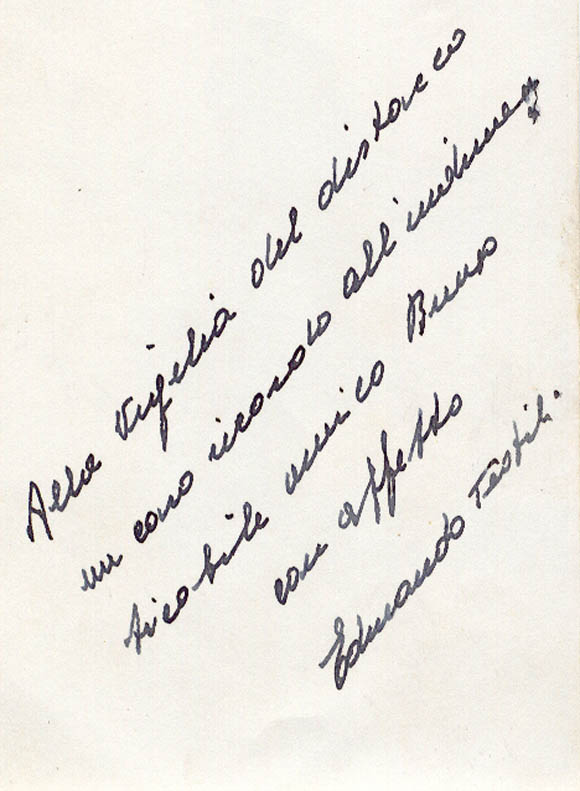 Alla vigilia del distacco
un caro ricordo all'indimen
ticabile amico Bruno
con affetto
Edmondo Testili